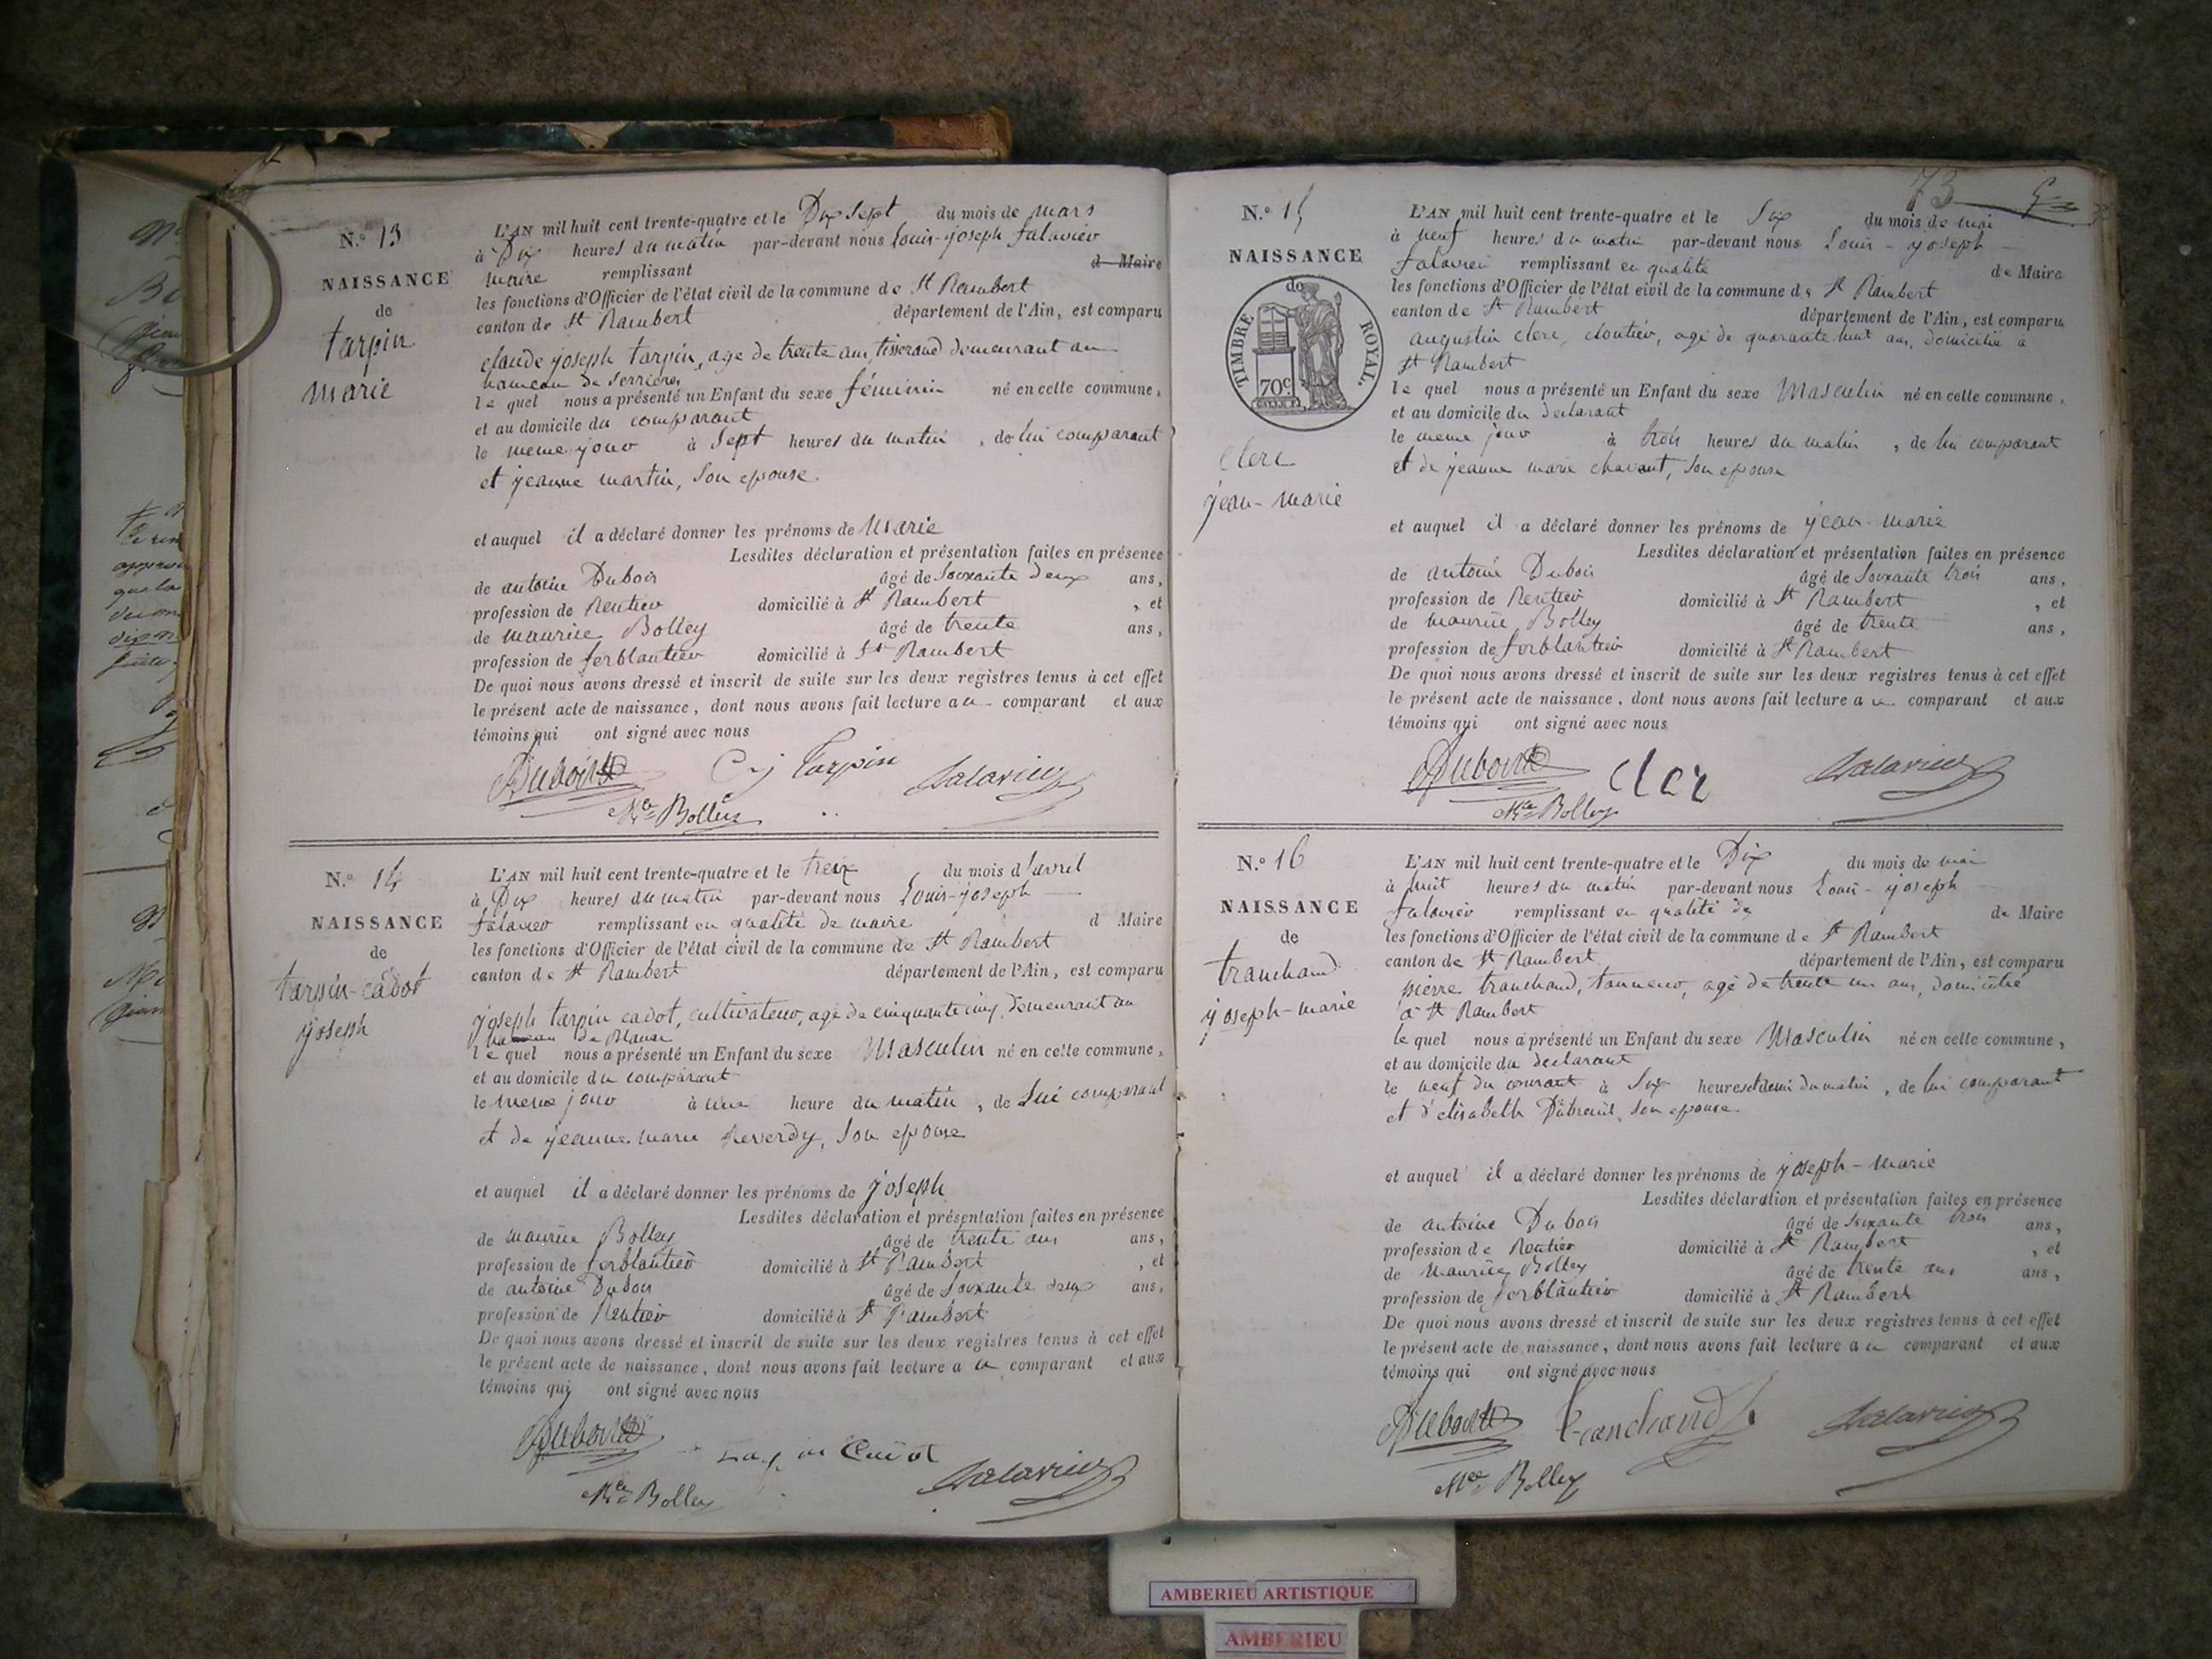 N.° 13
NAISSANCE
de
tarpin
marie
L'AN mil huit cent trente-quatre et le Dix Sept du mois de mars
à Dix heures du matin par-devant nous Louis-joseph falavier
maire remplissant d Maire
les fonctions d'Officier de l'état civil de la commune de St Rambert
canton de St Rambert département de l'Ain, est comparu
claude joseph tarpin, age de trente ans, tisserand demeurant au
hameau de Serrières
le quel nous a présenté un Enfant du sexe féminin né en celle commune,
et au domicile du comparant
le meme jour à Sept heures du matin, de lui comparant
et jeanne martin, Son epouse
et auquel il a déclaré donner les prénoms de Marie
Lesdites déclaration et présentation faites en présence
de antoine Dubois âgé de Soixante deux ans,
profession de Rentier domicilié à St Rambert, et
de maurice Bolley âgé de trente ans,
profession de ferblantier domicilié à St Rambert
De quoi nous avons dressé et inscrit de suite sur les deux registres tenus à cet effet
le présent acte de naissance, dont nous avons fait lecture au comparant et aux
témoins qui ont signé avec nous
Dubois C j Tarpin falavier
Mce Bolley
N.° 14
NAISSANCE
de
tarpin-cadot
joseph
L'AN mil huit cent trente-quatre et le treize du mois d'avril
à Dix heures du matin par-devant nous Louis-joseph
falavier remplissant en qualité de maire d Maire
les fonctions d'Officier de l'état civil de la commune de St Rambert
canton de St Rambert département de l'Ain, est comparu
joseph tarpin cadot, cultivateur, age de cinquante cinq, demeurant au
hameau de Blanaz
le quel nous a présenté un Enfant du sexe Masculin né en celle commune,
et au domicile du comparant
le meme jour à une heure du matin, de Lui comparant
et de jeanne marie Reverdy, Son epouse
et auquel il a déclaré donner les prénoms de joseph
Lesdites déclaration et présentation faites en présence
de maurice Bolley âgé de trente ans ans,
profession de ferblantier domicilié à St Rambert, et
de antoine Dubois âgé de Soixante deux ans,
profession de Rentier domicilié à St Rambert
De quoi nous avons dressé et inscrit de suite sur les deux registres tenus à cet effet
le présent acte de naissance, dont nous avons fait lecture au comparant et aux
témoins qui ont signé avec nous
Dubois falavier
Mce Bolley
73
N.° 15
NAISSANCE
de
TIMBRE ROYAL.
70c
Clerc
jean-marie
L'AN mil huit cent trente-quatre et le Six du mois de mai
à neuf heures du matin par-devant nous Louis-joseph
falavier remplissant en qualité de Maire
les fonctions d'Officier de l'état civil de la commune de St Rambert
canton de St Rambert département de l'Ain, est comparu
augustin clerc, cloutier, agé de quarante huit ans, domicilié à
St Rambert
le quel nous a présenté un Enfant du sexe Masculin né en celle commune,
et au domicile du declarant
le meme jour à trois heures du matin, de lui comparant
et de jeanne marie chavant, Son epouse
et auquel il a déclaré donner les prénoms de jean-marie
Lesdites déclaration et présentation faites en présence
de antoine Dubois âgé de Soixante trois ans,
profession de Rentier domicilié à St Rambert, et
de maurice Bolley âgé de trente ans,
profession de ferblantier domicilié à St Rambert
De quoi nous avons dressé et inscrit de suite sur les deux registres tenus à cet effet
le présent acte de naissance, dont nous avons fait lecture au comparant et aux
témoins qui ont signé avec nous
Dubois Cler falavier
Mce Bolley
N.° 16
NAISSANCE
de
tranchand
joseph-marie
L'AN mil huit cent trente-quatre et le Dix du mois de mai
à huit heures du matin par-devant nous Louis-joseph
falavier remplissant en qualité de de Maire
les fonctions d'Officier de l'état civil de la commune de St Rambert
canton de St Rambert département de l'Ain, est comparu
pierre tranchand, tanneur, agé de trente un ans, domicilié
à St Rambert
le quel nous a présenté un Enfant du sexe Masculin né en celle commune,
et au domicile du declarant
le neuf du courant à Six heures et demi du matin, de lui comparant
et d'elisabeth Dubreuil, Son epouse
et auquel il a déclaré donner les prénoms de joseph-marie
Lesdites déclaration et présentation faites en présence
de antoine Dubois âgé de Soixante trois ans,
profession de Rentier domicilié à St Rambert, et
de Maurice Bolley âgé de trente ans ans,
profession de ferblantier domicilié à St Rambert
De quoi nous avons dressé et inscrit de suite sur les deux registres tenus à cet effet
le présent acte de naissance, dont nous avons fait lecture au comparant et aux
témoins qui ont signé avec nous
Dubois tranchand falavier
Mce Bolley
AMBERIEU ARTISTIQUE
AMBERIEU